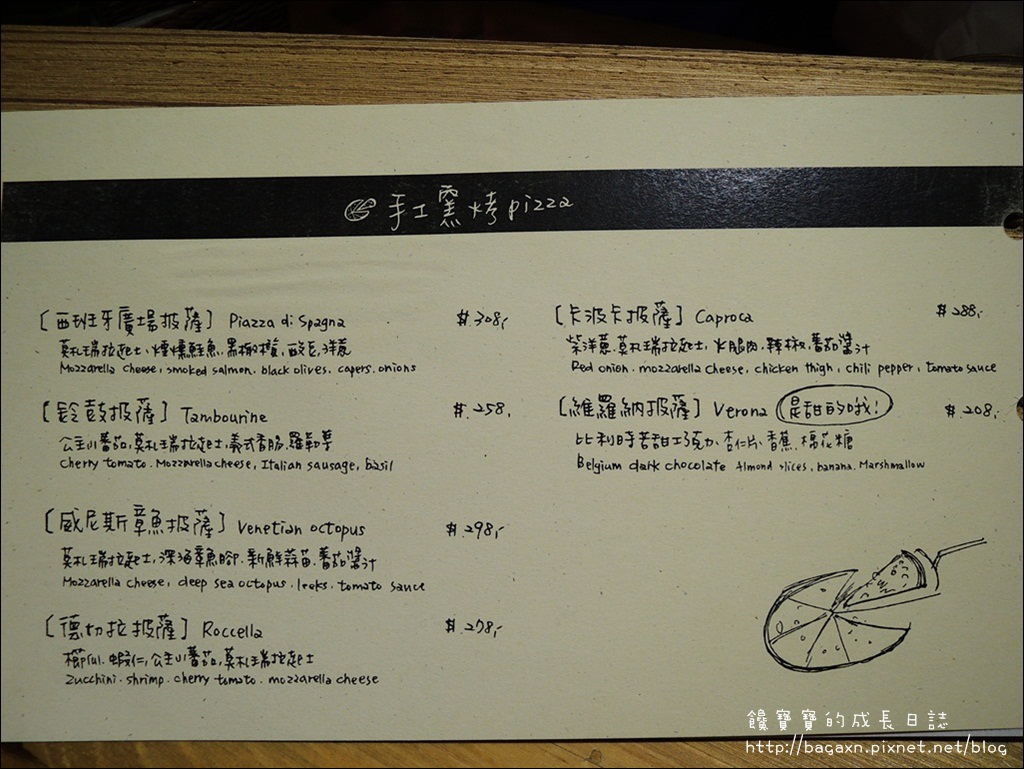 手工窯烤pizza
[西班牙廣場披薩] Piazza di Spagna $.308,-
莫札瑞拉起士、煙燻鮭魚、黑橄欖、酸豆、洋蔥
Mozzarella cheese, smoked salmon. black olives. capers. onions
[鈴鼓披薩] Tambourine $.258,
公主小番茄,莫札瑞拉起士,義式香腸,羅勒草
Cherry tomato. Mozzarella cheese, Italian sausage, basil
[威尼斯章魚披薩] Venetian octopus $.298,-
莫札瑞拉起士,深海章魚腳.新鮮蒜苗.蕃茄醬汁
Mozzarella cheese, deep sea octopus. leeks. tomato sauce
[德切拉披薩] Roccella $.278,-
櫛瓜.蝦仁,公主小番茄,莫札瑞拉起士
Zucchini. shrimp. cherry tomato. mozzarella cheese
[卡波卡披薩] Caproca $.288,-
紫洋蔥.莫札瑞拉起士,火腿肉.辣椒.蕃茄醬汁
Red onion. mozzarella cheese, chicken thigh, chili pepper, tomato sauce
[維羅納披薩] Verona 是甜的哦! $.208,
比利時苦甜巧克力.杏仁片.香蕉.棉花糖
Belgium dark chocolate Almond slices, banana. Marshmallow
饞寶寶的成長日誌
http://bagaxn.pixnet.net/blog